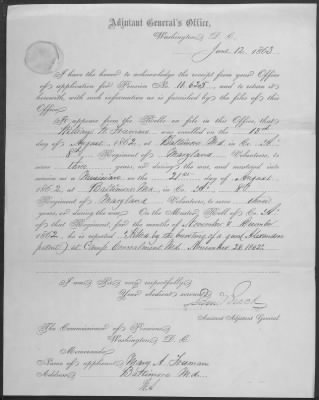 Adjutant General's Office,
Washington, D. C.
June 12, 1863
I have the honor to acknowledge the receipt from your Office
of application for Pension No. 11.625, and to return it
herewith, with such information as is furnished by the files of this
Office.
It appears from the Rolls on file in this Office, that
was enrolled on the
day of August, 1862, at Baltimore Md. in Co.
8th Regiment of Maryland Volunteers, to
serve three years, or during the war, and mustered into
service as a Musician on the 21st day of August,
1862, at Baltimore Md., in Co. 8th
Regiment of Maryland Volunteers, to serve three
years, or during the war. On the Muster Roll of Co.
of that Regiment, for the months of November & December,
1862, he is reported Killed by the bursting of a gun
at Camp Md. November 28 1862.
I am, Sir, very respectfully,
Your obedient servant,
Assistant Adjutant General
The Commissioner of Pensions,
Washington, D. C.
Memoranda:
Name of applicant Mary A.
Address, Baltimore Md.